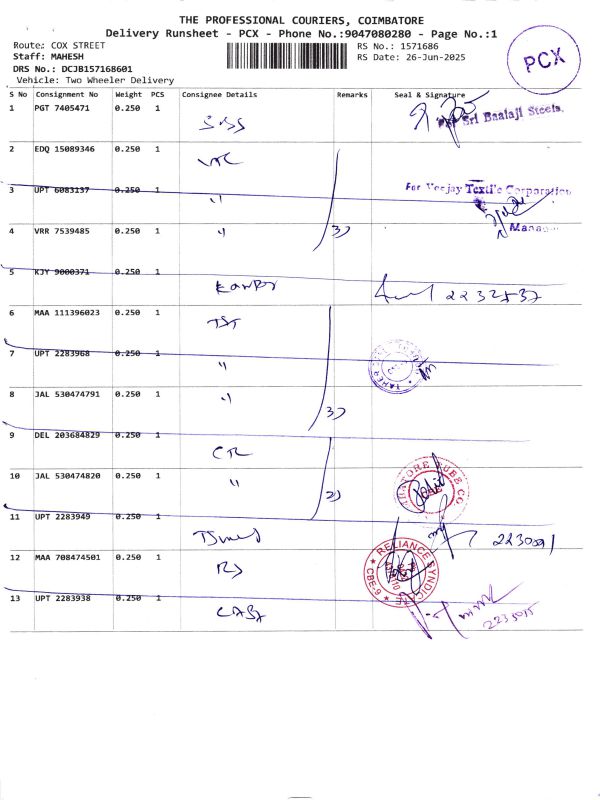 THE PROFESSIONAL COURIERS, COIMBATORE
Delivery Runsheet - PCX - Phone No.:9047080280 - Page No.:1
Route: COX STREET
RS No.: 1571686
Staff: MAHESH
RS Date: 26-Jun-2025
DRS No.: DCJB157168601
Vehicle: Two Wheeler Delivery
PCX
S No Consignment No Weight PCS Consignee Details Remarks Seal & Signature
1 PGT 7405471 0.250 1
Sri Baalaji Steels.
2 EDQ 15089346 0.250 1 VTC
3 UPT 6083137 0.250 1 "
For Veejay Textile Corporation
4 VRR 7539485 0.250 1 " 3)
Manager
5 KJY 9000371 0.250 1
2232537
6 MAA 111396023 0.250 1 TST
7 UPT 2283968 0.250 1 "
8 JAL 530474791 0.250 1 " 3)
9 DEL 203684829 0.250 1 CTL
10 JAL 530474820 0.250 1 " 2)
TUBE CO
11 UPT 2283949 0.250 1
2230091
12 MAA 708474501 0.250 1 RS
RELIANCE SYNDICATE
CBE-9
13 UPT 2283938 0.250 1
2235015